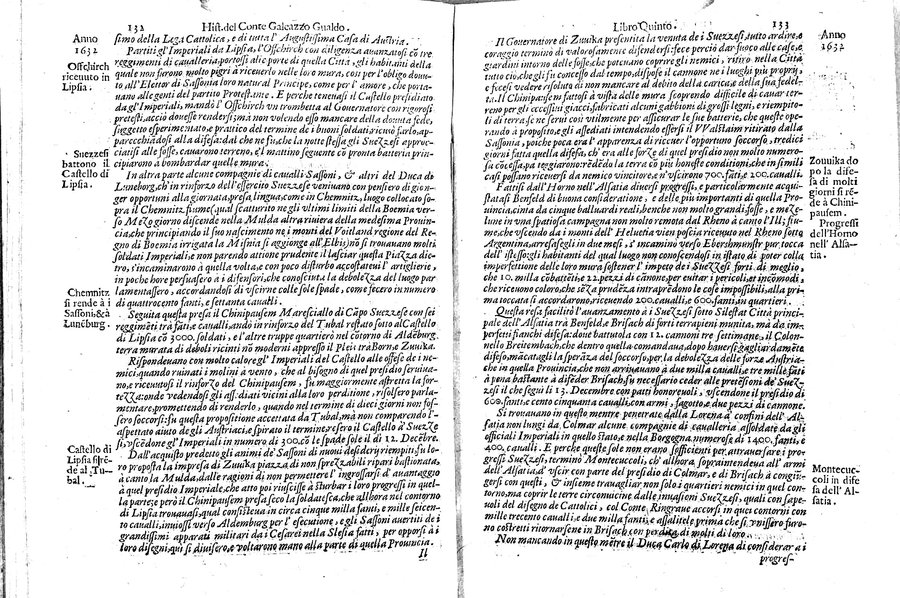 132 Hist. del Conte Galeazzo Gualdo.
Anno
1632
simo della Lega Cattolica, e di tutta l'Augustissima Casa di Austria.
Partiti gl'Imperiali da Lipsia, l'Offchirch con diligenza avanzatosi cõ tre
reggimenti di cavalleria, portossi alle porte di quella Città, gli habitanti della
Offchirch
riceuuto in
Lipsia.
quale non furono molto pigri a riceverlo nelle loro mura, così per l'obligo dovu-
to all'Elettor di Sassonia loro natural Principe, come per l'amore, che porta-
vano alle genti del partito Protestante. E perche tenevasi il Castello presidiato
da gl'Imperiali, mandò l'Offchirch vn trombetta al Governatore con rigorosi
protesti, acciò douesse rendersi; mà non volendo esso mancare della douuta fede,
soggetto esperimentato, e pratico del termine de i buoni soldati, ricusò farlo, ap-
parecchiãdosi alla difesa: dal che ne fù, che la notte stessa gli Suezzesi approc-
ciatisi alle fosse, cauarono terreno, e'l mattino seguente cõ pronta batteria prin-
Suezzesi
battono il
Castello di
Lipsia.
cipiarono a bombardar quelle mura.
In altra parte alcune compagnie di caualli Sassoni, & altri del Duca di
Luneborg, ch'in rinforzo dell'essercito Suezzese veniuano con pensiero di gion-
ger opportuni alla giornata, presa lingua, come in Chemnitz, luogo collocato so-
pra il Chemnitz, fiume, qual scaturito ne gli vltimi limiti della Boemia ver-
so Mezo giorno discende nella Mulda altra riuiera della medesma Prouin-
cia, che principiando il suo nascimento ne i monti del Voitland regione del Re-
gno di Boemia irrigata la Misnia si aggionge all'Elbis, nõ si trouauano molti
soldati Imperiali, e non parendo attione prudente il lasciar questa Piazza die-
tro, s'incaminarono à quella volta, e con poco disturbo accostateui l'artiglierie,
in poche hore persuasero à i difensori, che conosciuta la debolezza del luogo par-
lamentassero, accordandosi di vscirne colle sole spade, come fecero in numero
Chemnitz
si rende à i
Sassoni, & à
Luneburg.
di quattrocento fanti, e settanta caualli.
Seguita questa presa il Chinipausem Maresciallo di Cãpo Suezzese con sei
reggimẽti trà fãti, e caualli, andò in rinforzo del Tubal restato sotto al Castello
di Lipsia cõ 3000. soldati, e l'altre truppe quartierò nel cõtorno di Aldẽburg,
terra murata di deboli ricinti nõ moderni appresso il Plei trà Borna e Zuuika.
Rispondeuano con molto calore gl'Imperiali del Castello alle offese de i ne-
mici, quando ruinati i molini à vento, che al bisogno di quel presidio seruiua-
no, e riceuutosi il rinforzo del Chinipausem, fù maggiormente astretta la for-
tezza: onde vedendosi gli assediati vicini alla loro perditione, risolsero parla-
mentare, promettendo di renderlo, quando nel termine di dieci giorni non fos-
sero soccorsi: fu questa propositione accettata da Tubal, mà non comparendo l'-
aspettato aiuto de gli Austriaci, e spirato il termine, resero il Castello à Suezze
Castello di
Lipsia si rẽ-
de al Tu-
bal.
si, vscẽdone gl'Imperiali in numero di 300. cõ le spade sole il di 12. Decẽbre.
Dall'acquisto predetto gli animi de' Sassoni di nuoui desiderij riempiti, fu lo-
ro proposta la impresa di Zuuika piazza di non sprezzabili ripari bastionata,
à canto la Mulda, dalle ragioni di non permettere l'ingrossarsi d'auantaggio
à quel presidio Imperiale, che atto poi riuscisse à sturbar i loro progressi in quel-
la parte; e però il Chinipausem presa seco la soldatesca, che allhora nel contorno
di Lipsia trouauasi, qual consisteua in circa cinque mila fanti, e mille seicen-
to caualli, inuiossi verso Aldemburg per l'esecutione, e gli Sassoni auertiti de i
grandissimi apparati militari da i Cesarei nella Slesia fatti, per opporsi à i
loro disegni, qui si diuisero, e voltarono mano alla parte di quella Prouincia.
Il
Libro Quinto. 133
Anno
1632
Il Gouernatore di Zuuika presentita la venuta de i Suezzesi, tutto ardire, e
coraggio terminò di valorosamente difendersi: fece perciò dar fuoco alle case, e
giardini intorno delle fosse, che potuano coprire gli nemici, ritirò nella Città
tutto ciò, che gli fu concesso dal tempo, dispose il cannone ne i luoghi più proprij,
e fecesi vedere risoluto di non mancare al debito della carica, e della sua fedel-
tà. Il Chinipausem fattosi à vista delle mura scoprendo difficile di cauar ter-
reno per gli eccessiui giacci, fabricati alcuni gabbioni di grossi legni, e riempito-
li di terra se ne serui così vtilmente per assicurare le sue batterie, che queste ope-
rando à proposito, e gli assediati intendendo essersi il VValstaim ritirato dalla
Sassonia, poiche poca era l'apparenza di riceuer l'opportuno soccorso, tredici
giorni fatta quella difesa, ch'era alle forze di quel presidio non molto numero-
sa cõcessa, patteggiarono: rẽdẽdo la terra cõ più honeste conditioni, che in simili
Zouuika do
po la dife-
sa di molti
giorni si rẽ-
de à Chini-
pausem.
casi possano riceuersi da nemico vincitore, e n'vscirono 700. fãti, e 200. caualli.
Fattisi dall'Horno nell'Alsatia diuersi progressi, e particolarmente acqui-
stata si Benfeld di buona consideratione, e delle più importanti di quella Pro-
uincia, cinta da cinque balluardi reali, benche non molto grandi, fosse, e meze-
lune in vna spatiosa campagna non molto remota dal Rheno à canto l'Ill; fiu-
me, che vscendo da i monti dell'Heluetia vien poscia riceuuto nel Rheno sotto
Progressi
dell'Horno
nell'Alsa-
tia.
Argentina, arresasegli in due mesi, s'incaminò verso Ebershmunstr pur, tocca
dell'istesso, gli habitanti del qual luogo non conoscendosi in istato di poter colla
imperfettione delle loro mura sostener l'impeto de i Suezzesi forti di meglio,
che 10. mila cõbattẽti, e 22. pezzi di cãnone, per euitar i pericoli, e incõmodi,
che riceuono coloro, che sẽza prudẽza intraprẽdono le cose impossibili, alla pri-
ma toccata si accordarono, riceuendo 200. caualli, e 600. fanti, in quartieri.
Questa resa facilitò l'auanzamento à i Suezzesi sotto Silestat Città princi-
pale dell'Alsatia trà Benfeld, e Brisach di forti terrapieni munita, mà da im-
perfetti fianchi difesa: doue battutola con 12. cannoni tre settimane, il Colon-
nello Breitembach, che dentro quella comandaua, dopo hauersi gagliardamẽte
difeso, mãcatagli la sperãza del soccorso, per la debolezza delle forze Austria-
che in quella Prouincia, che non arriuauano à due milla caualli, e tre mille fãti
à pena bastante à difẽder Brisach, fu necessario ceder alle pretẽsioni de' Suez-
zesi il che seguì li 13. Decembre con patti honoreuoli, vscendone il presidio di
600. fanti, e cento cinquanta caualli, con armi, sagotto, e due pezzi di cannone.
Si trouarono in questo mentre penetrate dalla Lorena à confini dell'Al-
satia non lungi da Colmar alcune compagnie di caualleria assoldate da gli
officiali Imperiali in quello stato, e nella Borgogna, numerose di 1400. fanti, e
400. caualli. E perche queste sole non erano sofficienti per attrauersare i pro-
gressi Suezzesi, terminò Montecucoli, ch'allhora sopraintendeua all'armi
Montecuc-
coli in dife
sa dell'Al-
satia.
dell'Alsatia, d'vscir con parte del presidio di Colmar, e di Brisach à congiun-
gersi con questi, & insieme trauagliar, non solo i quartieri nemici in quel con-
torno, mà coprir le terre circomuicine dalle inuasioni Suezzesi, quali con sapeu-
uoli del disegno de Cattolici, col Conte Ringraue accorsi in quei contorni con
mille trecento caualli, e due mila fanti, e assalitele prima che si vnissero furo-
no costretti ritornarsene in Brisach con perdita di molti di loro.
Non mancando in questo mẽtre il Duca Carlo di Lorena di considerar a i
progres-